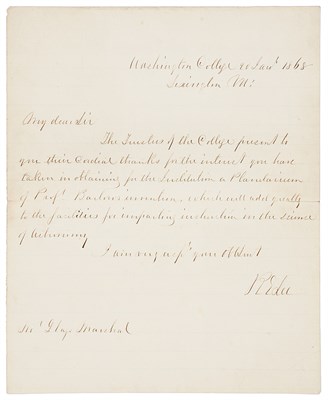 Washington College 20 Jany 1868
Lexington Va:
My dear Sir
The Trustees of the College present to
you their Cordial thanks for the interest you have
taken in obtaining for the Institution a Planetarium
of Profr Barlow's invention, which will add greatly
to the facilities for imparting instruction in the science
of Astronomy
I am very respy your Obt Servt
R E Lee
Marshal